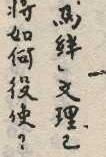 馬絆、文理、已
將如何役使？